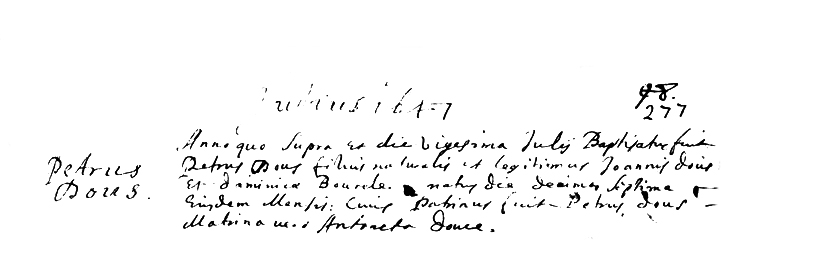 Julius 1647
98.
277
Petrus
Dous.
Anno quo supra et die vigesima Julij Baptisatus fuit
Petrus Dous filius naturalis et legitimus Joannis Dous
Et Dominica Bourele. natus die decima septima
Eiusdem Mensis: Cuius Patrinus fuit Petrus Dous
Matrina vero Antoneta Douce.